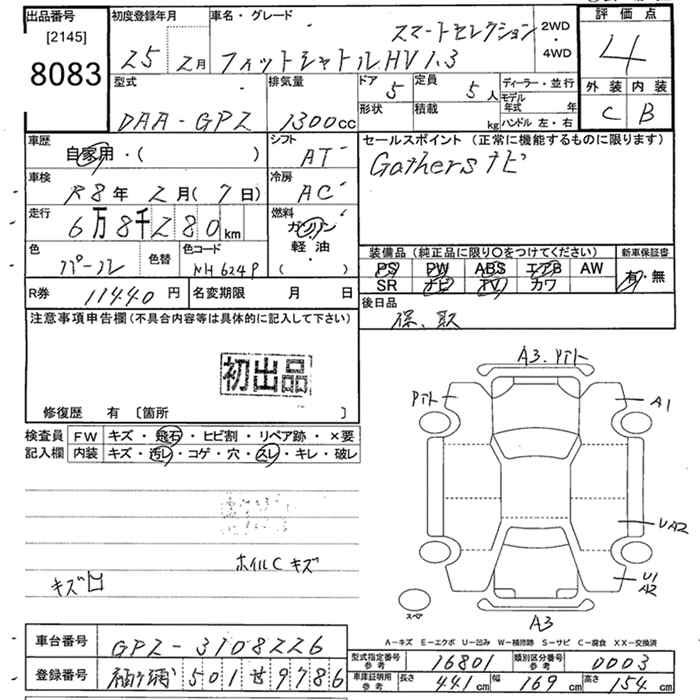 出品番号 [2145] 8083
初度登録年月 25 2月
車名・グレード スマートセレクション
フィットシャトルHV 1.3
2WD・4WD
評価点 4
外装 C 内装 B
型式 DAA-GP2
排気量 1300cc
ドア 5 定員 5人
形状 積載 kg
ディーラー・並行
モデル年式 年
ハンドル 左・右
車歴 自家用・( )
シフト AT
セールスポイント (正常に機能するものに限ります)
Gathersナビ
車検 R8年2月(7日)
冷房 AC
走行 6万8千280km
燃料 ガソリン 軽・油 ・( )
色 パール 色替 色コード NH624P
装備品 (純正品に限り○をつけてください) 新車保証書
PS PW ABS エアB AW 有・無
SR ナビ TV カワ
R券 11440円 名変期限 月 日
後日品
保、取
注意事項申告欄 (不具合内容等は具体的に記入して下さい)
初出品
修復歴 有 〔箇所 〕
検査員 FW キズ・飛石・ヒビ割・リペア跡・×要
記入欄 内装 キズ・汚レ・コゲ・穴・スレ・キレ・破レ
A3.
A1
UA2
U1
A2
A3
スペア
ホイルCキズ
キズ
A-キズ E-エクボ U-凹み W-補修跡 S-サビ C-腐食 XX-交換済
車台番号 GP2-3108226
型式指定番号 参考 16801 類別区分番号 参考 0003
登録番号 501 せ 9786
車庫証明用 参考 長さ 441cm 幅 169cm 高さ 154cm